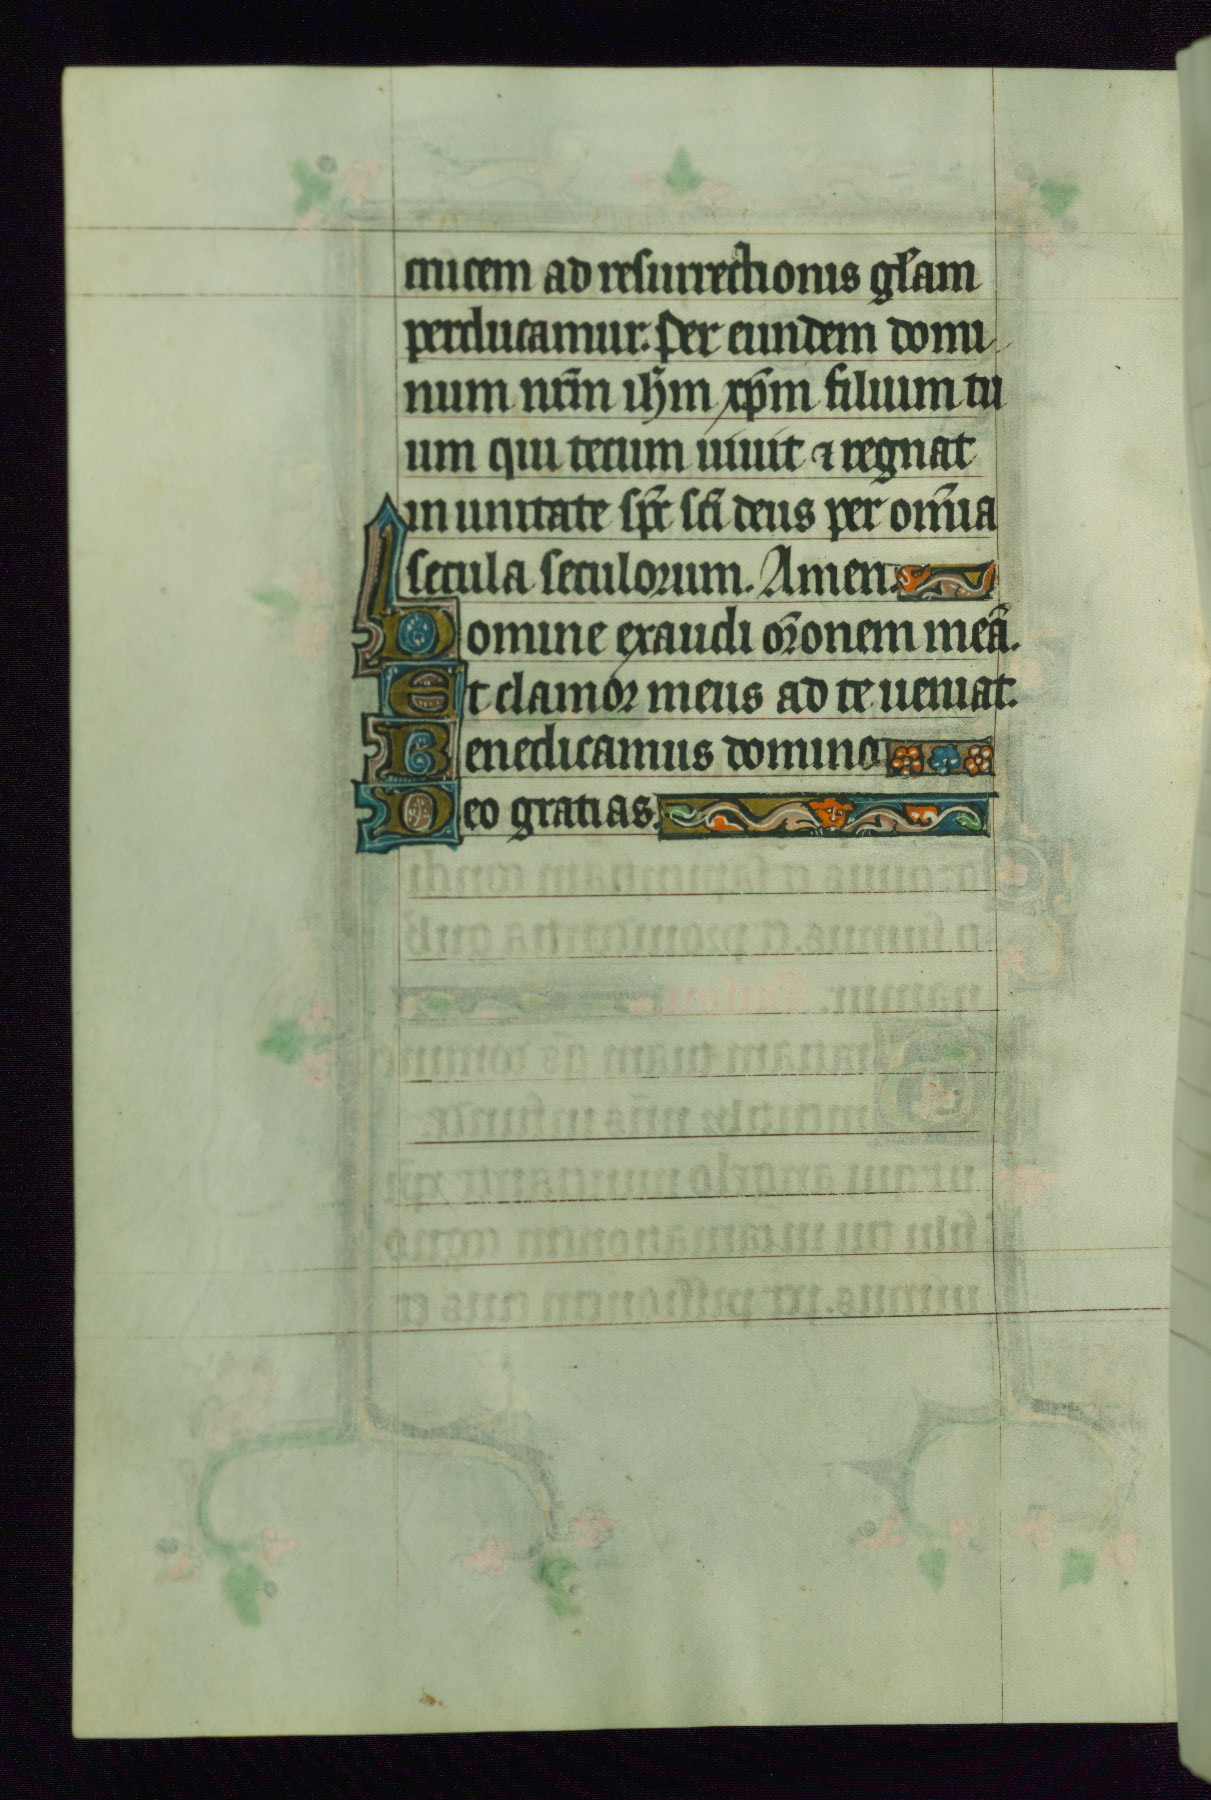 crucem ad resurrectionis gl̄am
perducamur. Per eundem domi
num nr̄m ih̄m xp̄m filium tu
um qui tecum uiuit ⁊ regnat
in unitate sp̄c sc̄i deus per om̄ia
secula seculorum. Amen.
Domine exaudi or̄onem meā.
Et clamor meus ad te ueniat.
Benedicamus domino
Deo gratias.